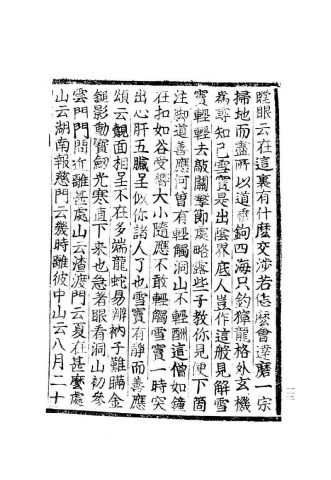 瞠眼云在這裏有什麽交涉若恁麽會達磨一宗
掃地而盡所以道垂鉤四海只釣獰龍格外玄機
爲尋知己雪竇是出陰界底人豈作這般見解雪
竇輕輕去敲關擊節處略露些子教你見便下箇
注脚道善應何曾有輕觸洞山不輕酬這僧如鐘
在扣如谷受響大小隨應不敢輕觸雪竇一時突
出心肝五臟呈似你諸人了也雪竇有靜而善應
頌云覿面相呈不在多端龍蛇易辨衲子難瞞金
鎚影動寶劍光寒直下來也急著眼看洞山初參
雲門門問近離甚處山云渣渡門云夏在甚麽處
山云湖南報慈門云幾時離彼中山云八月二十